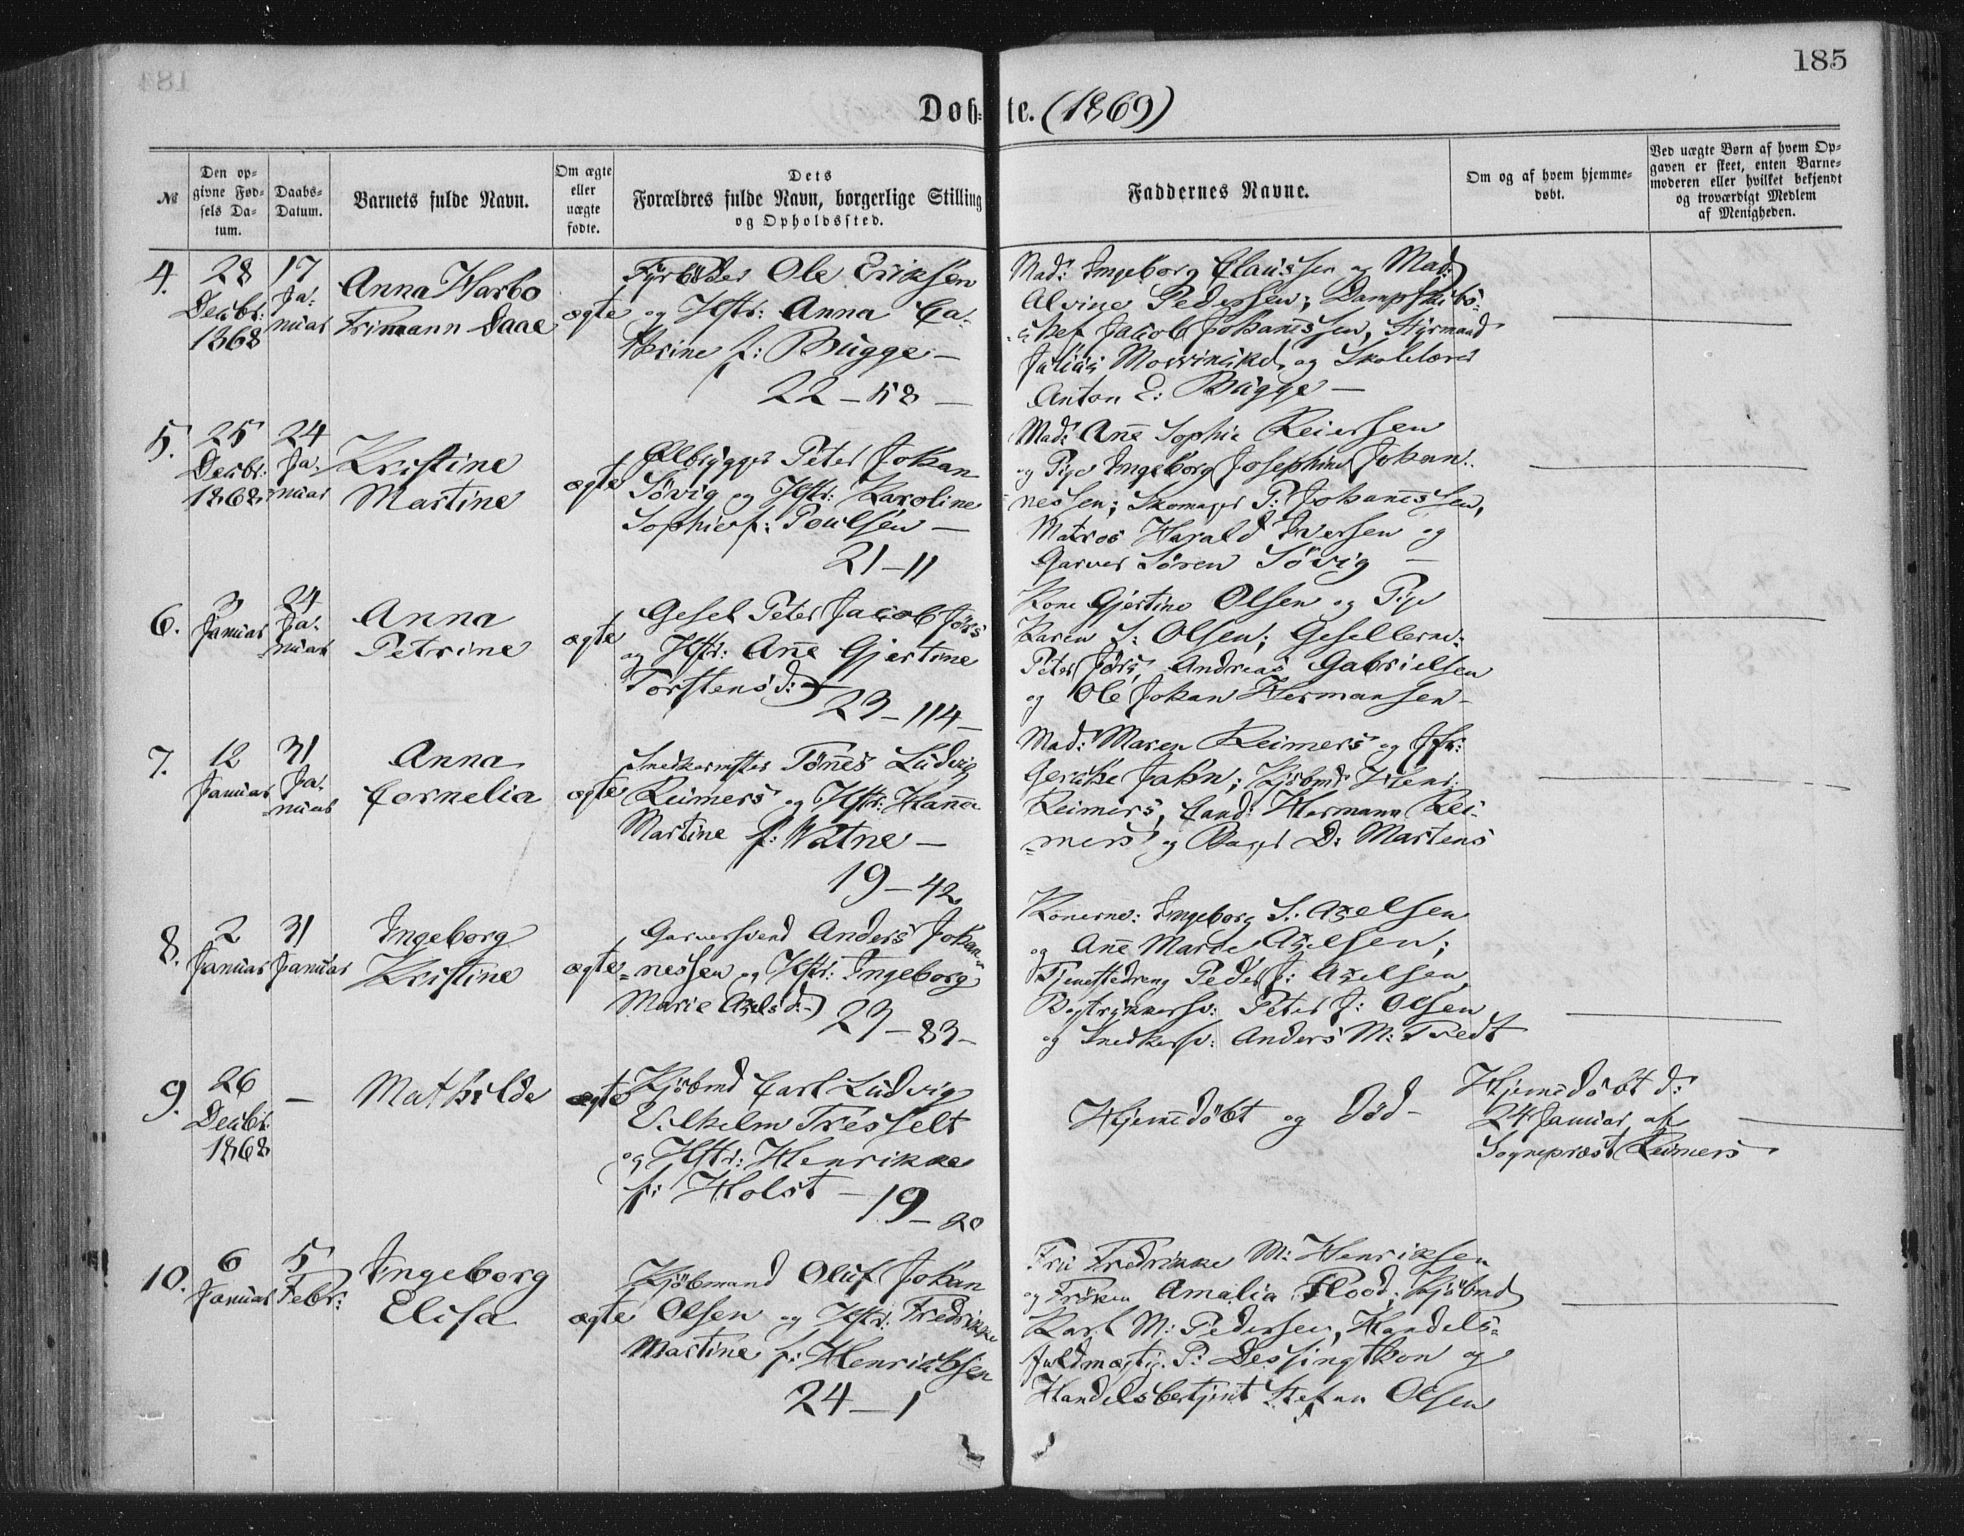 185
Døb-te. (1869)
№
Den opgivne Fødsels Datum.
Daabs-Datum.
Barnets fulde Navn.
Om ægte eller uægte fødte.
Dets Forældres fulde Navn, borgerlige Stilling og Opholdssted.
Faddernes Navne.
Om og af hvem hjemmedøbt.
Ved uægte Børn af hvem Opgaven er skeet, enten Barnemoderen eller hvilket bekjendt og troværdigt Medlem af Menigheden.
4.
28
Decbr:
1868
17
Ja-
nuar
Anna Harbo
Frimann Daae
ægte
Fyrbøder Ole Eriksen
og Hstr: Anna Ca-
therine f: Bugge —
22 — 58 —
Mad: Ingeborg Claussen og Mad:
Alvine Pedersen; Dampskibs-
Jacob Johannssen, Styrmand
Julius og Skolelærer
Anton E: Bugge —
5.
25
Decbr:
1868
24
Ja-
nuar
Kristine
Martine
ægte
Ølbrygger Peter Johan
Søvig og Hstr: Karoline
Sophie f: Poulsen —
21 — 11
Mad: Anne Sophie Reiersen
og Pige Ingeborg Josephine Johan-
nessen; Skomager P: Johannessen,
Matros Harald Iversen og
Garver Søren Søvig —
6.
3
Januar
24
Ja-
nuar
Anna
Petrine
ægte
Gesel Peter Jacob Jørs
og Hstr: Anne Gjertine
Torstensd: —
23 — 114 —
Kone Gjertine Olsen og Pige
Karen S: Olsen; Gesellerne:
Peter Jørs, Andreas Gabrielsen
og Ole Johan Hermansen —
7.
12
Januar
31
Ja-
nuar
Anna
Cornelia
ægte
Snedkermster Tønnes Ludvig
Reimers og Hstr: Hanna
Martine f: Watne —
19 — 42
Mad: Maren Reimers og Jfr:
Gesche Jahn; Kjøbmd Henr:
Reimers, Cand: Hermann Rei-
mers og Bager D: Martens
8.
2
Januar
31
Januar
Ingeborg
Kristine
ægte
Garversvend Anders Johan-
nessen og Hstr: Ingeborg
Marie Axelsd: —
23 — 83 —
Konerne: Ingeborg S. Axelsen
og Anne Marie Axelsen;
Tjenestedreng Peder J: Axelsen,
Bogtrykkersv: Peter J: Olsen
og Snedkersv: Anders M: Tvedt
9.
26
Decbr:
1868
—
Mathilde
ægte
Kjøbmd Carl Ludvig
Vilhelm Tresselt
og Hstr: Henrikke
f: Holst —
19 — 20
Hjemmedøbt og død —
Hjemmedøbt d:
24 Januar af
Sognepræst Reimers
10.
6
Januar
5
Febr:
Ingeborg
Elisa
ægte
Kjøbmand Oluf Johan
Olsen og Hstr: Fredrikke
Martine f: Henrichsen
24 — 1
Fru Fredrikke M: Henriksen
og Frøken Amalia Flood; Kjøbmd
Karl M: Pedersen, Handels-
fuldmægtig P: Dessingthon og
Handelsbetjent Stefan Olsen